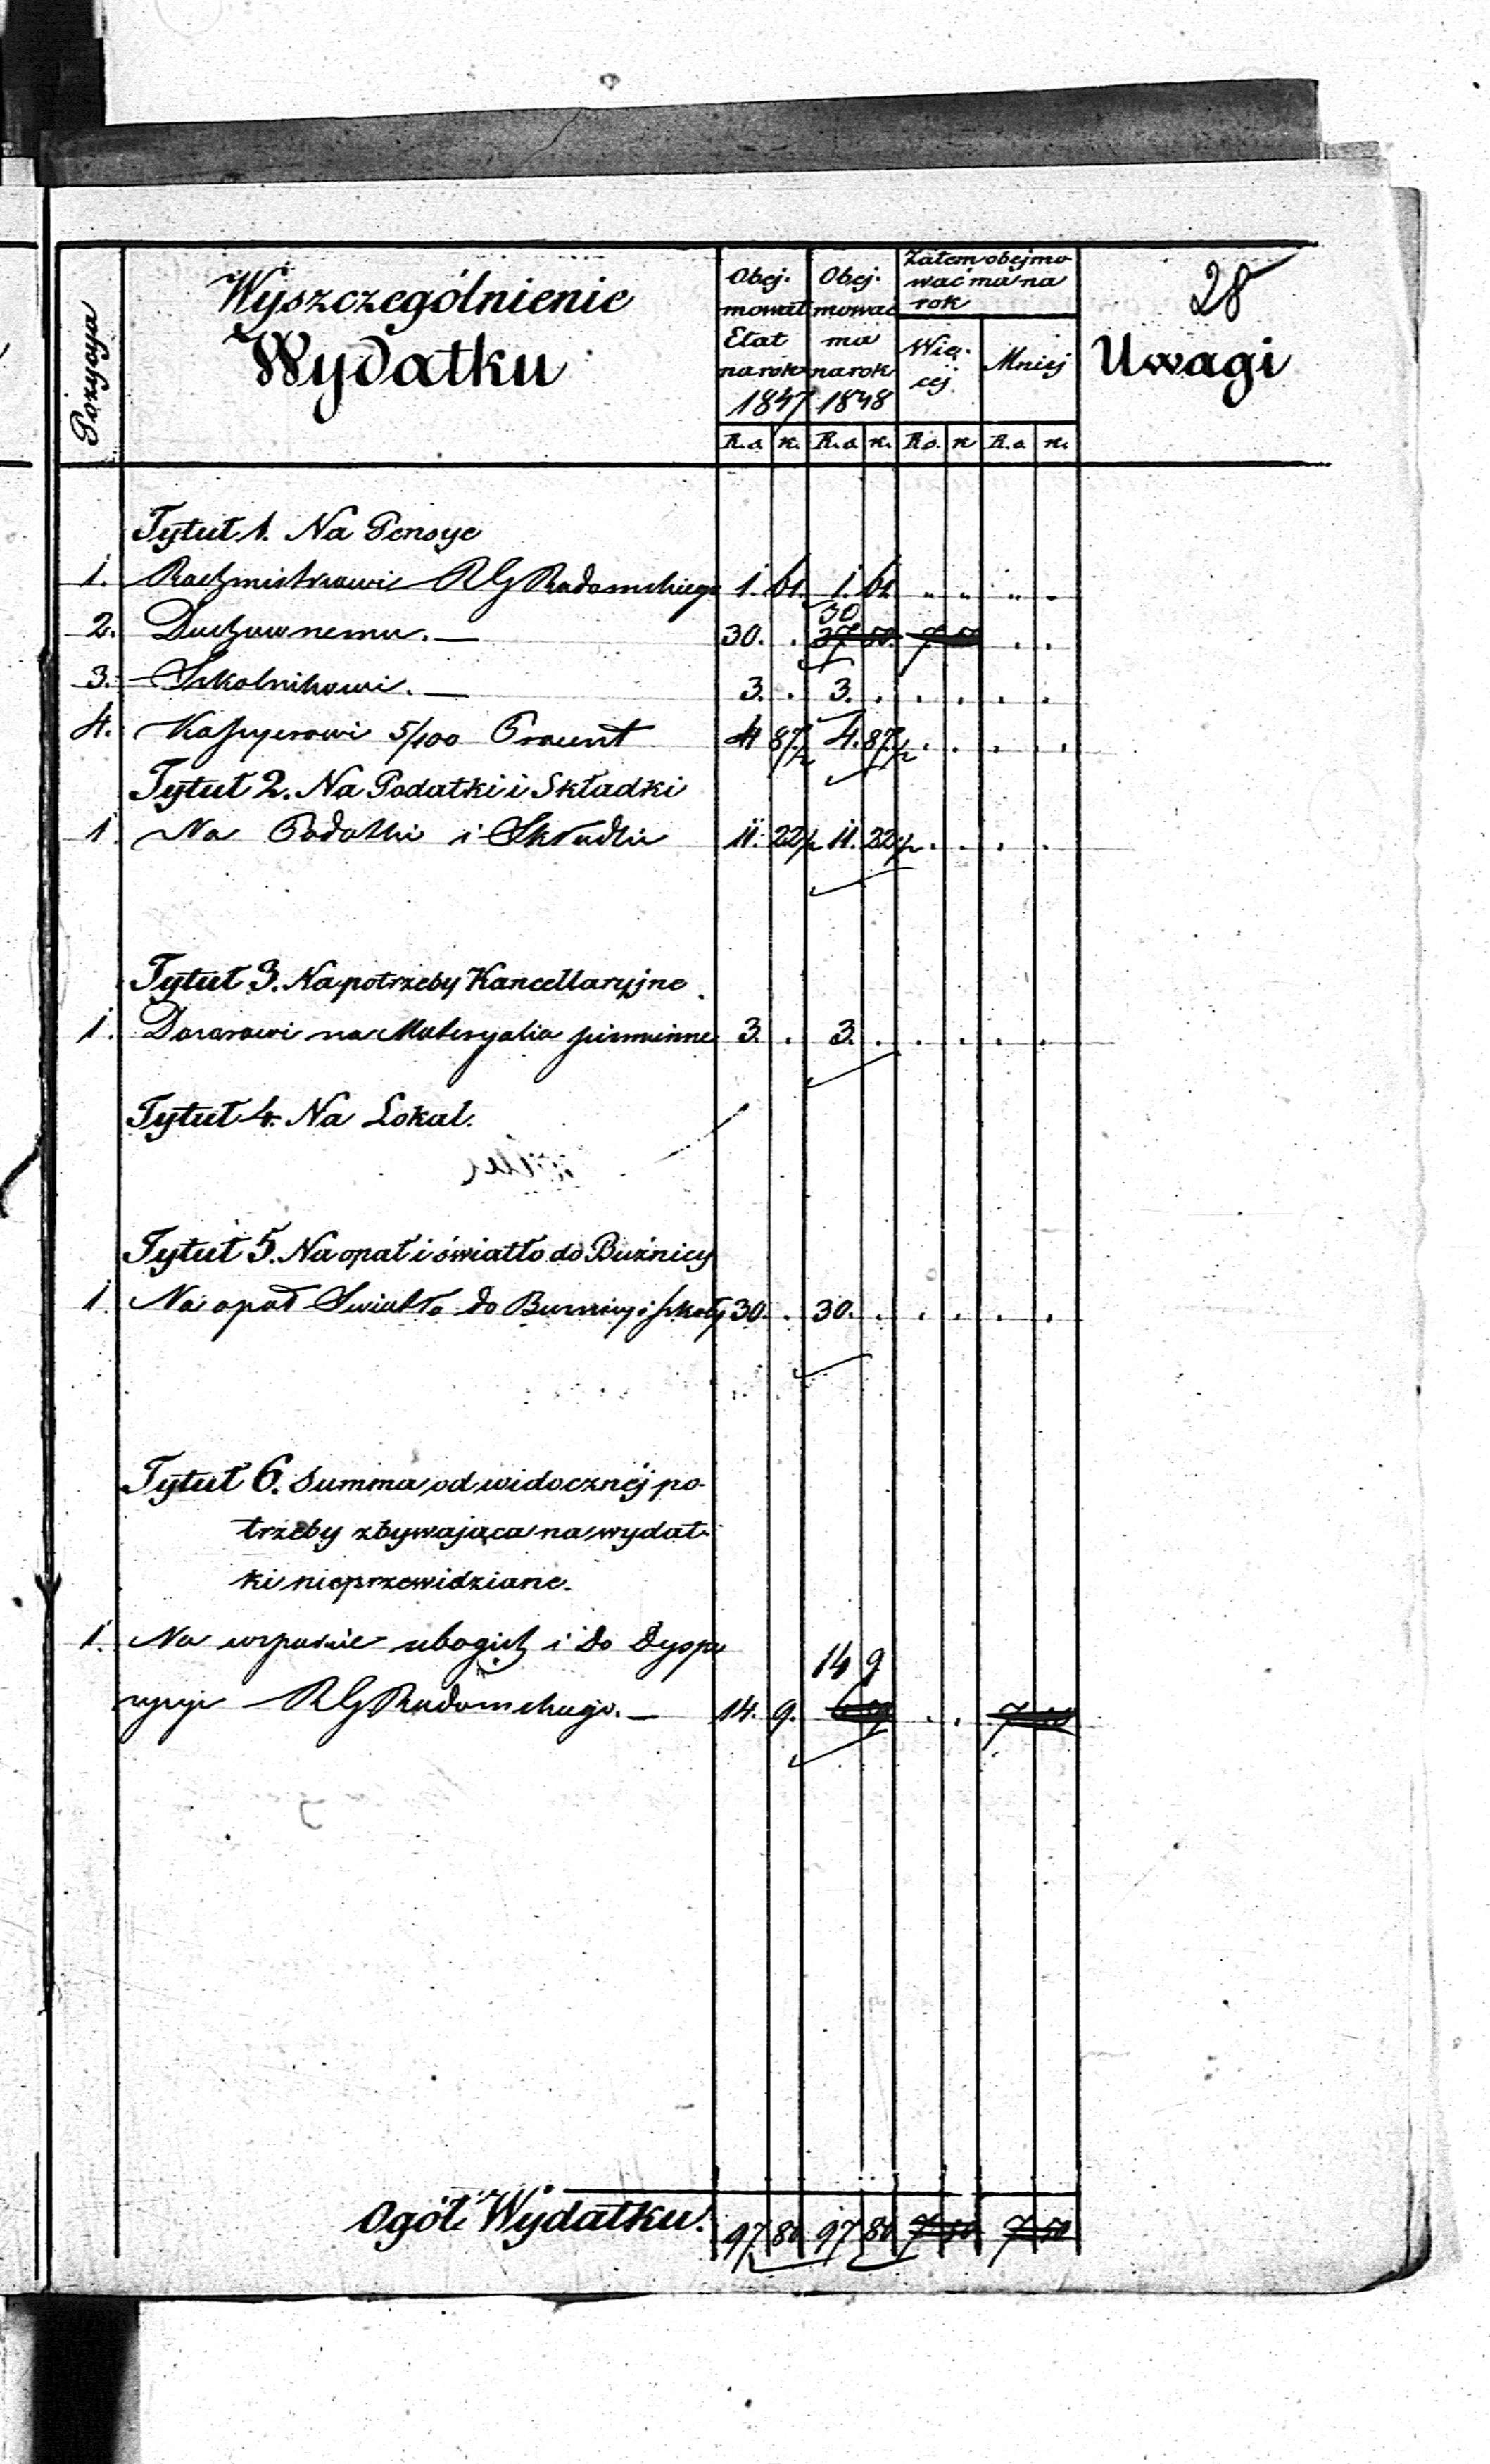 28
Pozycya
Wyszczególnienie
Wydatku
Obej-
mował
Etat
na rok
1847
Obej-
mować
ma
na rok
1848
Zatem obejmo
wać ma na
rok
Wię-
cej
Mniej
Uwagi
R.s. k. R.s. k. R.s. k R.s. k.
Tytuł 1. Na Pensye
1. Rachmistrzowi RG Radomskiego 1. 61. 1. 61 " " " "
30
2. Duchownemu. — 30. . 37 50. 7 50 . .
3. Szkolnikowi. — 3. . 3. . . . . .
4. Kassyerowi 5/100 Procent 4 87½ 4. 87½ . . . .
Tytuł 2. Na Podatki i Składki
1 Na Podatki i Składki 11. 22½ 11. 22½ . . . .
Tytuł 3. Na potrzeby Kancellaryjne
1. Dozorowi na Materyalia piśmienne 3. . 3. . . . . .
Tytuł 4. Na Lokal.
Tytuł 5. Na opał i światło do Bużnicy
1. Na opał Swiatło do Buznicy i szkoły 30. . 30. . . . . .
Tytuł 6. Summa od widocznéj po-
trzeby zbywająca na wydat-
ki nieprzewidziane.
1. Na wsparcie ubogich i do Dyspo
14 9
zycyi RG Radomskiego. — 14. 9. . . 7 50
Ogół Wydatku. 97 80 97 80 7 50 7 50